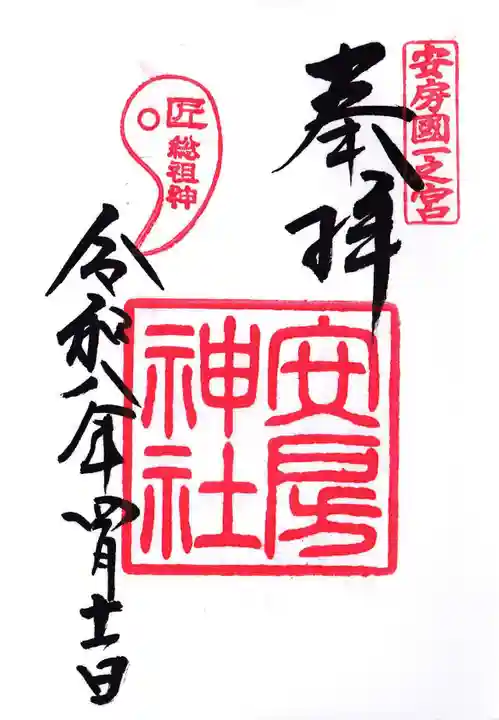 安房國一之宮
奉拝
安房
神社
匠
総祖神
令和八年四月十一日